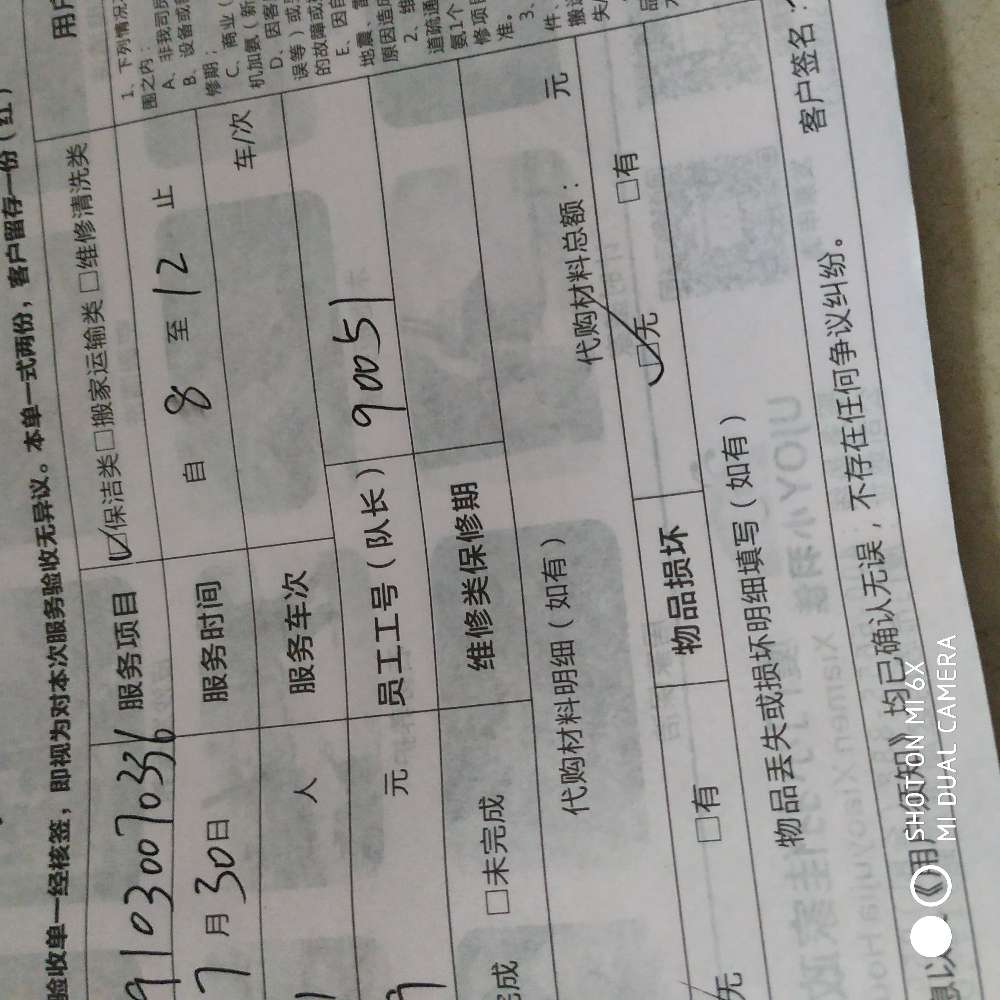 验收单一经核签，即视为对本次服务验收无异议。本单一式两份，客户留存一份（红）
910300703
服务项目
保洁类 □搬家运输类 □维修清洗类
7月30日
服务时间
自 8 至 12 止
人
服务车次
车/次
元
员工工号（队长）
90051
□未完成
维修类保修期
代购材料明细（如有）
代购材料总额：
元
□有
物品损坏
□无
□有
物品丢失或损坏明细填写（如有）
《用户须知》均已确认无误，不存在任何争议纠纷。
客户签名：
用户
1、下列情况
围之内：
A、非我司员
B、设备或
修期；
C、商业（
机加氨（新
D、因客
误等）或
的故障或
E、因自
地震、雷
原因造成
2、维
道疏通
氨1个
修项目
准。
3、
件、
搬运
SHOT ON MI 6X
MI DUAL CAMERA